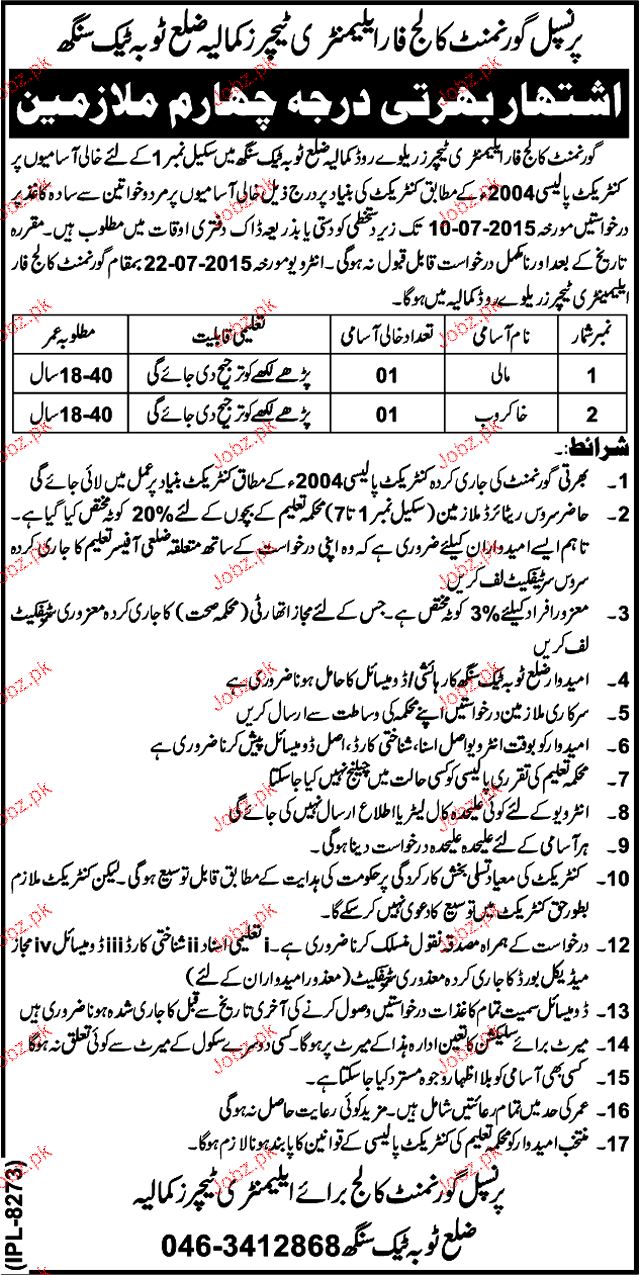 پرنسپل گورنمنٹ کالج فار ایلیمنٹری ٹیچرز کمالیہ ضلع ٹوبہ ٹیک سنگھ
اشتہار بھرتی درجہ چہارم ملازمین
گورنمنٹ کالج فار ایلیمنٹری ٹیچرز ریلوے روڈ کمالیہ ضلع ٹوبہ ٹیک سنگھ میں سکیل نمبر 1 کے لئے خالی آسامیوں پر
کنٹریکٹ پالیسی 2004ء کے مطابق کنٹریکٹ کی بنیاد پر درج ذیل خالی آسامیوں پر مرد و خواتین سے سادہ کاغذ پر
درخواستیں مورخہ 10-07-2015 تک زیر دستخطی کو دستی یا بذریعہ ڈاک دفتری اوقات میں مطلوب ہیں۔ مقررہ
تاریخ کے بعد اور نامکمل درخواست قابل قبول نہ ہوگی۔ انٹرویو مورخہ 22-07-2015 بمقام گورنمنٹ کالج فار
ایلیمینٹری ٹیچرز ریلوے روڈ کمالیہ میں ہوگا۔
نمبر شمار نام آسامی تعداد خالی آسامی تعلیمی قابلیت مطلوبہ عمر
1 مالی 01 پڑھے لکھے کو ترجیح دی جائے گی 18-40 سال
2 خاکروب 01 پڑھے لکھے کو ترجیح دی جائے گی 18-40 سال
شرائط:۔
1۔ بھرتی گورنمنٹ کی جاری کردہ کنٹریکٹ پالیسی 2004ء کے مطابق کنٹریکٹ بنیاد پر عمل میں لائی جائے گی
2۔ حاضر سروس ریٹائرڈ ملازمین (سکیل نمبر 1 تا 7) محکمہ تعلیم کے بچوں کے لئے 20% کوٹہ مختص کیا گیا ہے۔
تاہم ایسے امیدواران کیلئے ضروری ہے کہ وہ اپنی درخواست کے ساتھ متعلقہ ضلعی آفیسر تعلیم کا جاری کردہ
سروس سرٹیفکیٹ لف کریں
3۔ معزور افراد کیلئے 3% کوٹہ مختص ہے۔ جس کے لئے مجاز اتھارٹی (محکمہ صحت) کا جاری کردہ معزوری سرٹیفکیٹ
لف کریں
4۔ امیدوار ضلع ٹوبہ ٹیک سنگھ کا رہائشی/ڈومیسائل کا حامل ہونا ضروری ہے
5۔ سرکاری ملازمین درخواستیں اپنے محکمہ کی وساطت سے ارسال کریں
6۔ امیدوار کو بوقت انٹرویو اصل اسنا، شناختی کارڈ، اصل ڈومیسائل پیش کرنا ضروری ہے
7۔ محکمہ تعلیم کی تقرری پالیسی کو کسی حالت میں چیلنج نہیں کیا جا سکتا
8۔ انٹرویو کے لئے کوئی علیحدہ کال لیٹر یا اطلاع ارسال نہیں کی جائے گی
9۔ ہر آسامی کے لئے علیحدہ علیحدہ درخواست دینا ہوگی۔
10۔ کنٹریکٹ کی معیاد تسلی بخش کارکردگی پر حکومت کی ہدایت کے مطابق قابل توسیع ہوگی۔ لیکن کنٹریکٹ ملازم
بطور حق کنٹریکٹ میں توسیع کا دعوی نہیں کر سکے گا۔
12۔ درخواست کے ہمراہ مصدقہ نقول منسلک کرنا ضروری ہے۔ i تعلیمی اسناد ii شناختی کارڈ iii ڈومیسائل iv مجاز
میڈیکل بورڈ کا جاری کردہ معذوری سرٹیفکیٹ (معذور امیدواران کے لئے)
13۔ ڈومیسائل سمیت تمام کاغذات درخواستیں وصول کرنے کی آخری تاریخ سے قبل کا جاری شدہ ہونا ضروری ہیں
14۔ میرٹ برائے سلیکشن کا تعین ادارہ ہذا کے میرٹ پر ہوگا۔ کسی دوسرے سکول کے میرٹ سے کوئی تعلق نہ ہوگا
15۔ کسی بھی آسامی کو بلا اظہار وجوہ مسترد کیا جا سکتا ہے۔
16۔ عمر کی حد میں تمام رعائتیں شامل ہیں۔ مزید کوئی رعایت حاصل نہ ہوگی
17۔ منتخب امیدوار کو محکمہ تعلیم کی کنٹریکٹ پالیسی کے قوانین کا پابند ہونا لازم ہوگا۔
پرنسپل گورنمنٹ کالج برائے ایلیمنٹری ٹیچرز کمالیہ
ضلع ٹوبہ ٹیک سنگھ 046-3412868
(IPL-8273)
Jobz.pk